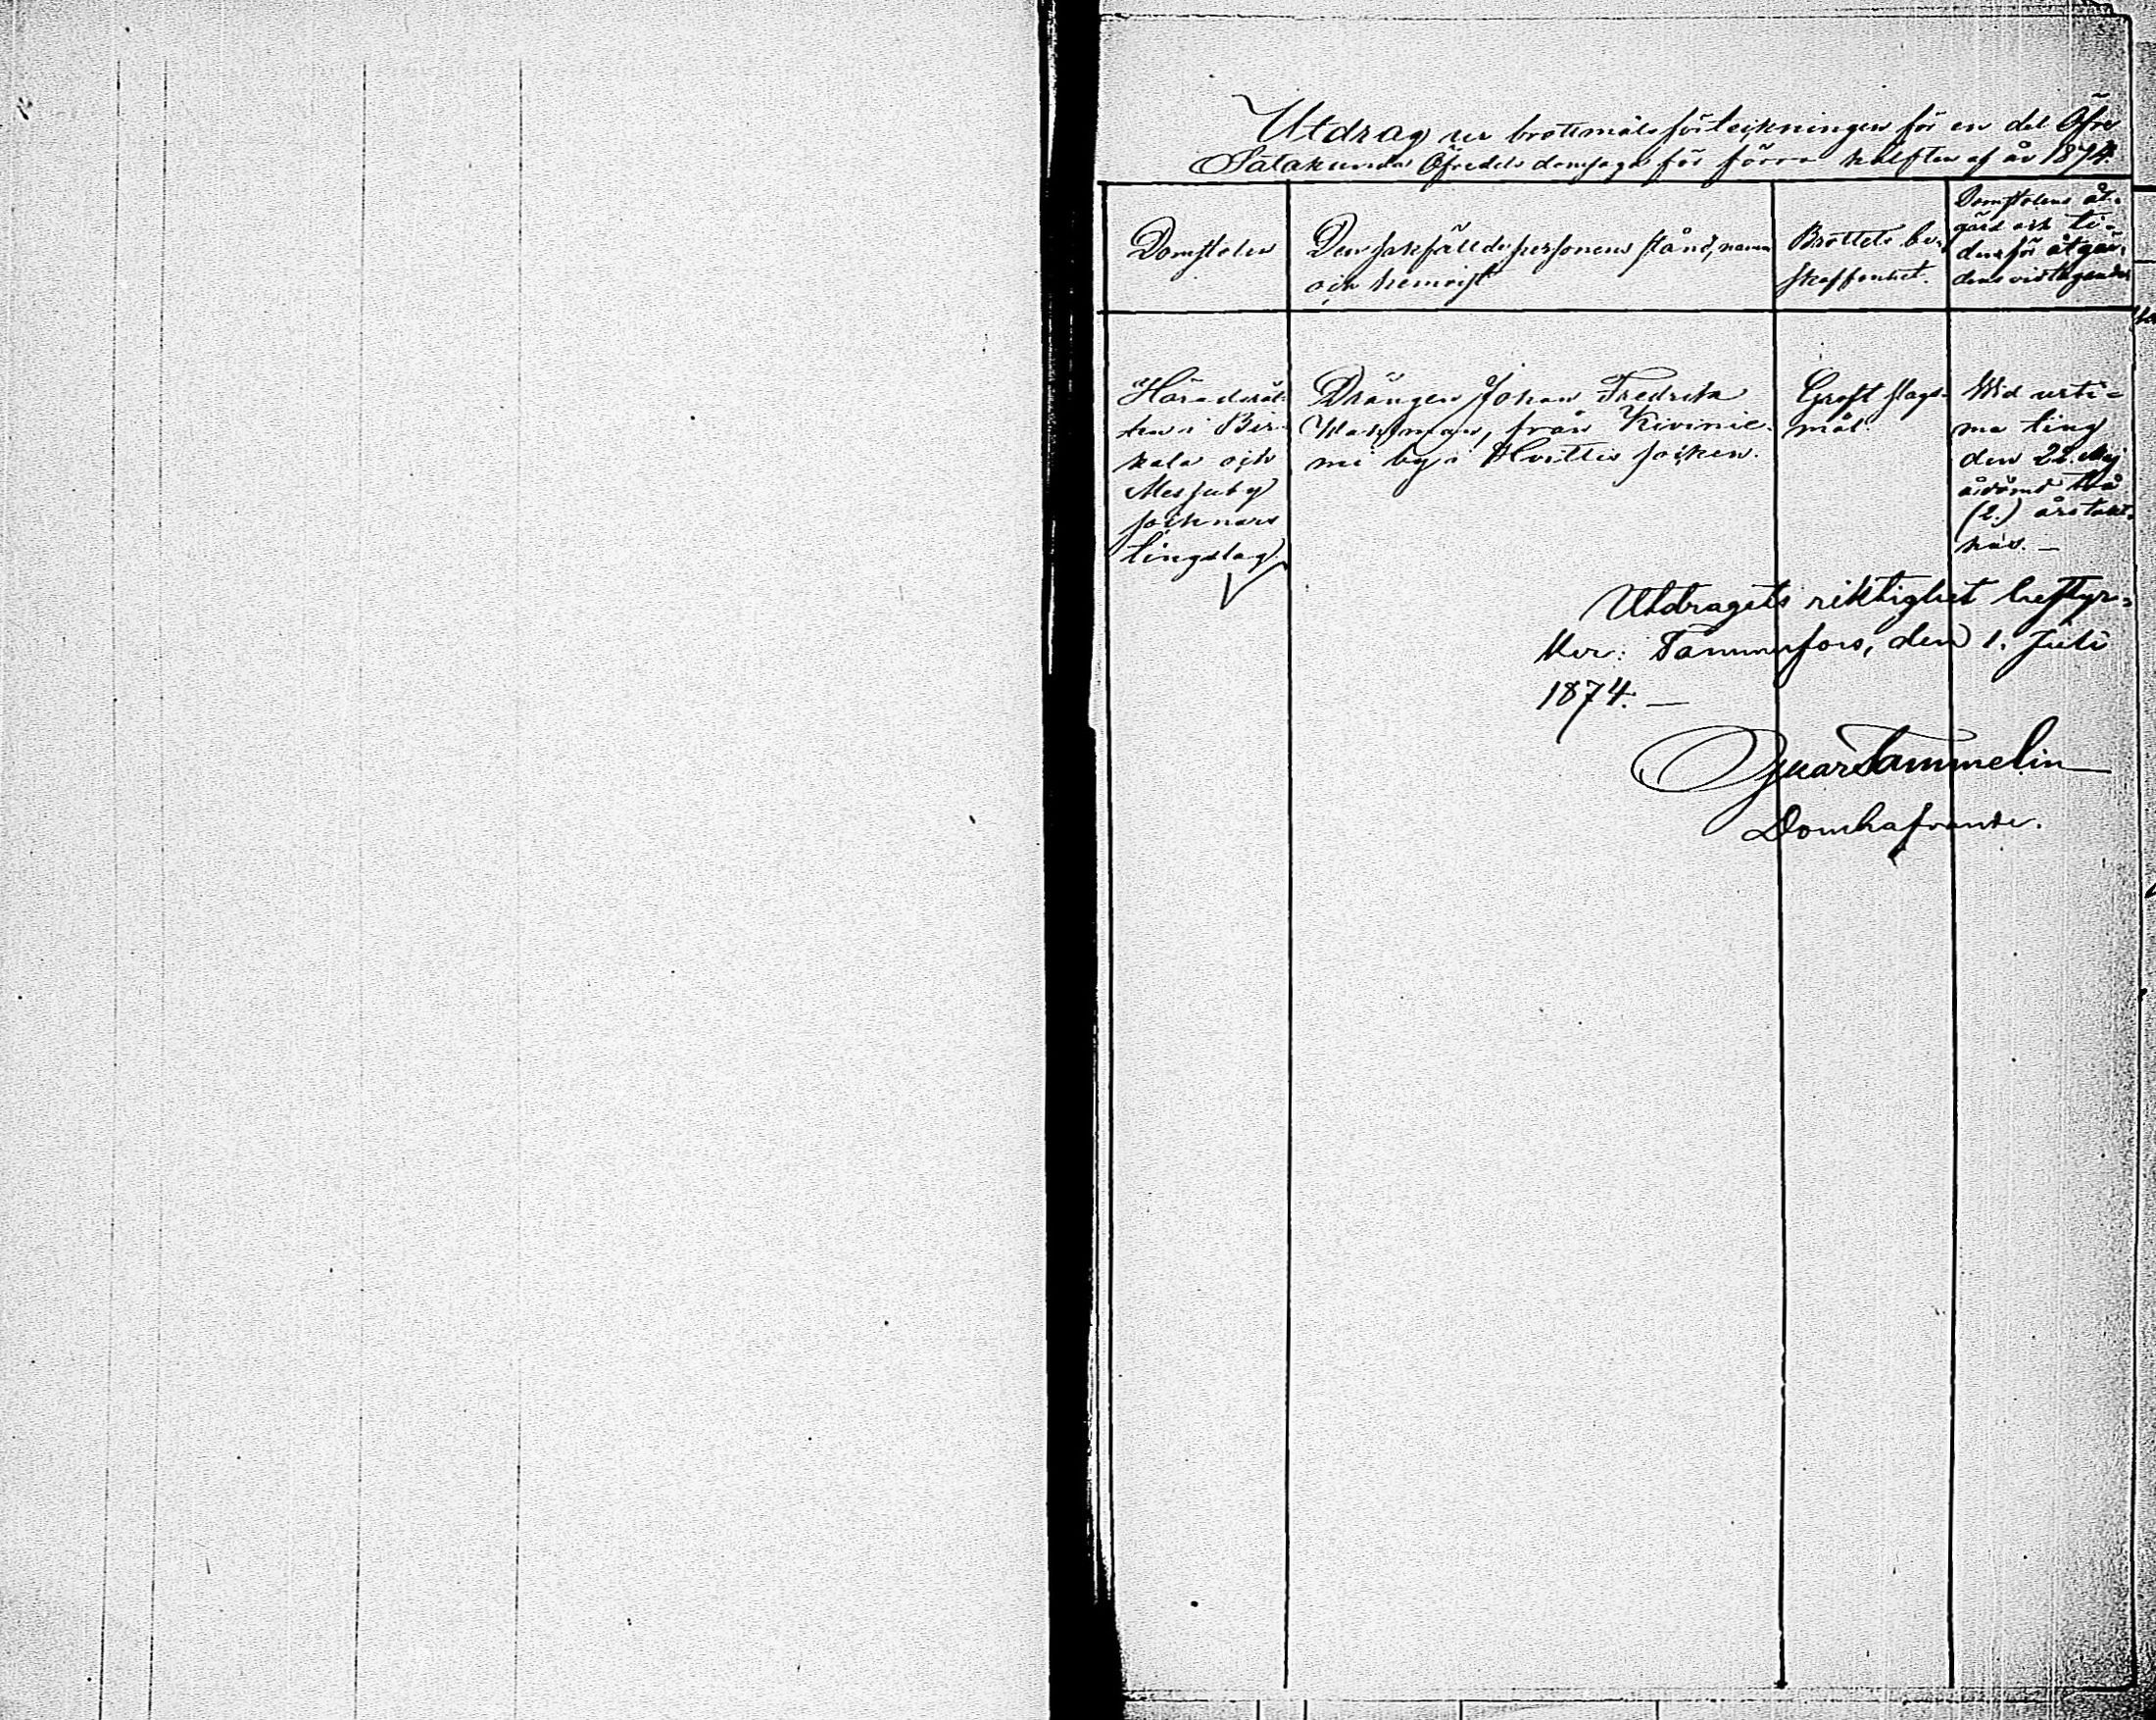 Utdrag ur brottmålsförteckningen för en del Öfre
Satakunda Öfredels domsaga för förra hälften af år 1874.
Domstolen
Den sakfällde personens stånd, namn
och hemvist
Brottets be-
skaffenhet.
Domstolens åt-
gärd och ti-
den för åtgär-
dens vidtagande
Häradsrät-
ten i Bir-
kala och
Messuby
socknars
tingslag
Drängen Johan Fredrik
från Kivinie-
mi by i Hvittis socken.
Groft slags-
mål.
Wid urti-
ma ting
den 22. Maj
ådömd två
(2.) års tukt-
hus. —
Utdragets riktighet bestyr-
ker: Tammerfors, den 1. Juli
1874. —
Tammelin
Domhafvande.